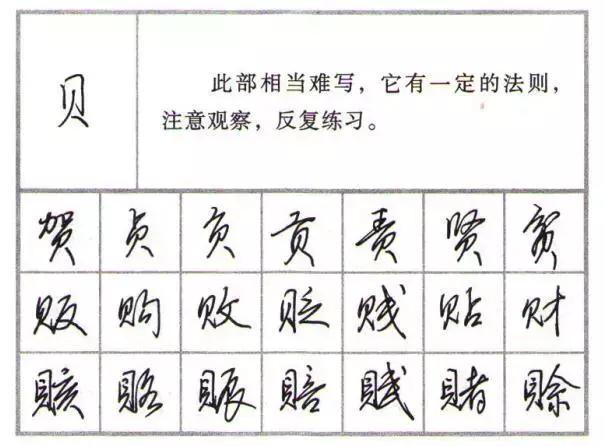 贝
此部相当难写，它有一定的法则，
注意观察，反复练习。
贺 贞 负 贡 责 贤
贩 购 败 贬 贱 贴 财
赅 赂 赈 赔 赋 赌 赊